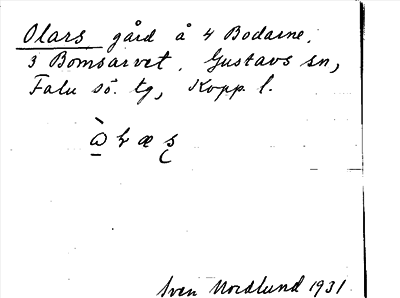 Olars gård å 4 Bodarne.
3 Bomsarvet. Gustavs sn,
Falu sö. tg, Kopp. l.
Sven Nordlund 1931